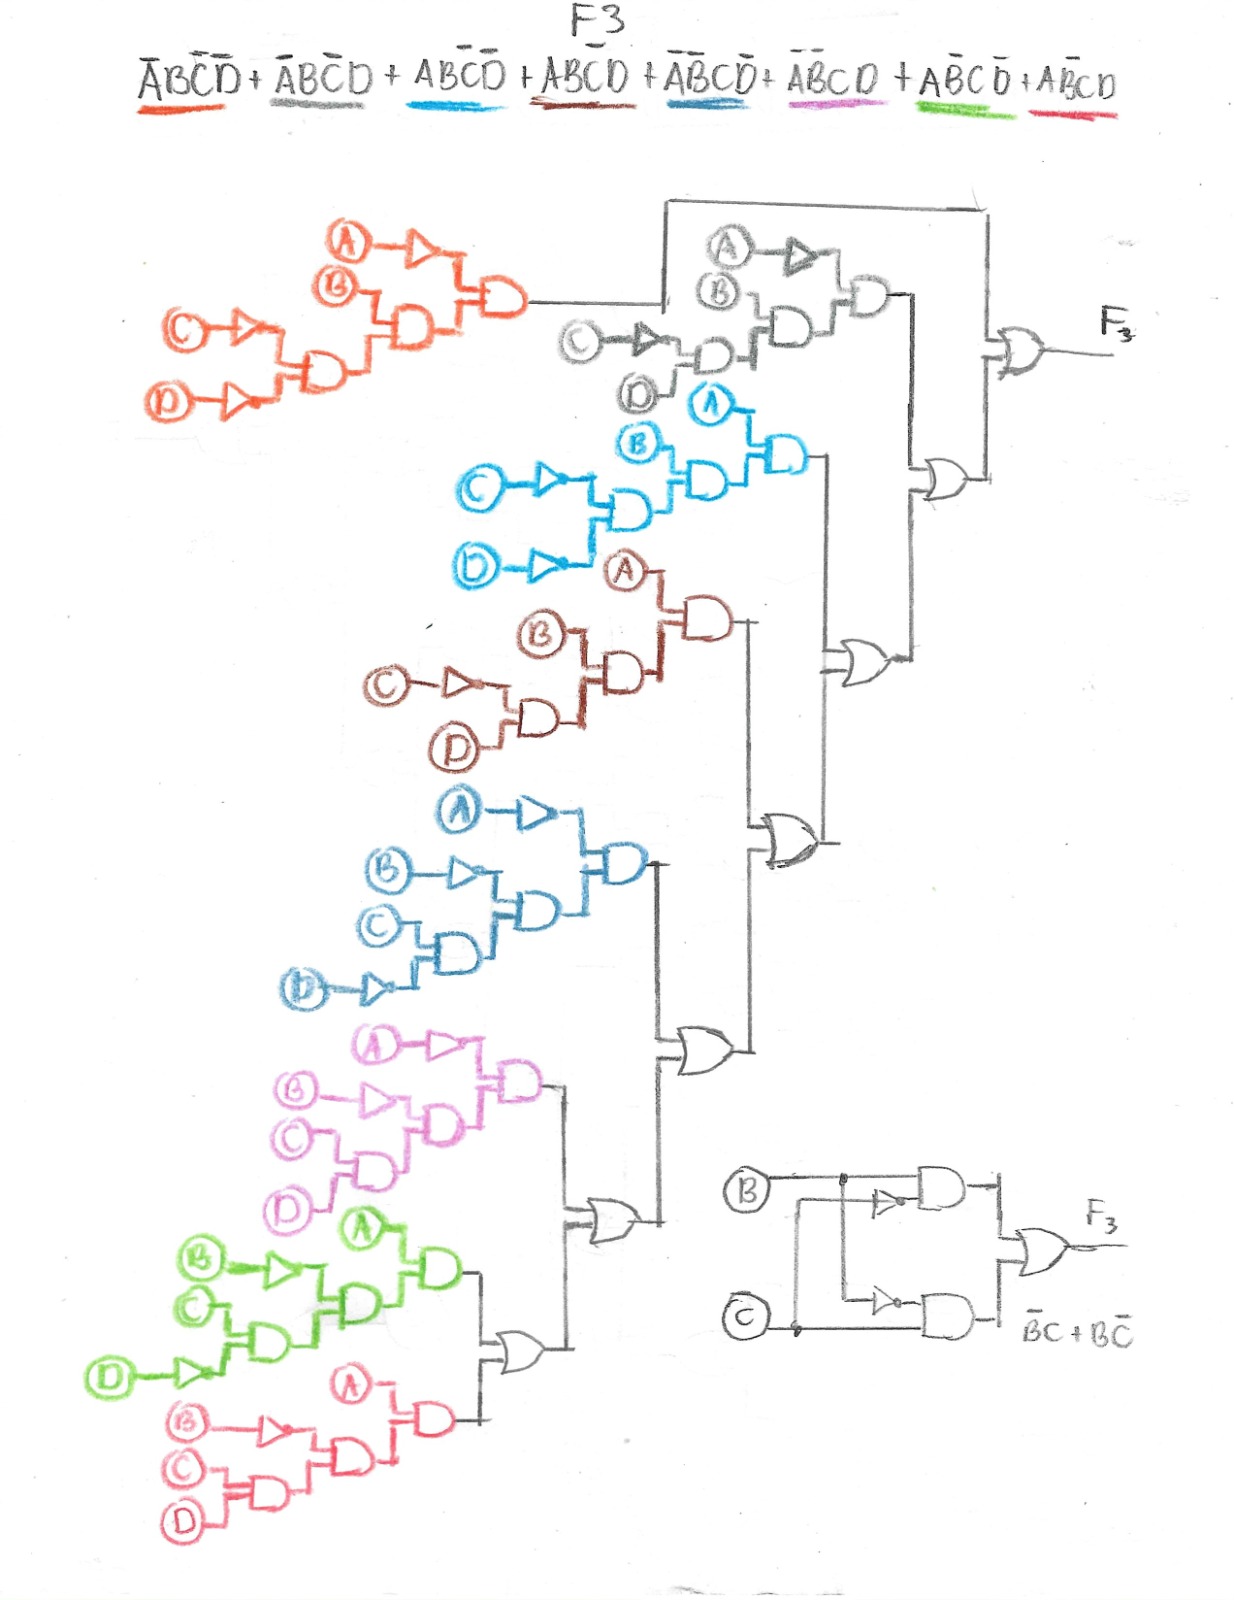 F3
A̅BC̅D̅ + A̅BC̅D + ABC̅D̅ + ABC̅D + A̅B̅CD̅ + A̅B̅CD + AB̅CD̅ + AB̅CD
A
B
C
D
A
B
C
D
F₃
A
B
C
D
A
B
C
D
A
B
C
D
A
B
C
D
A
B
C
D
A
B
C
D
B
C
F₃
B̅C + BC̅